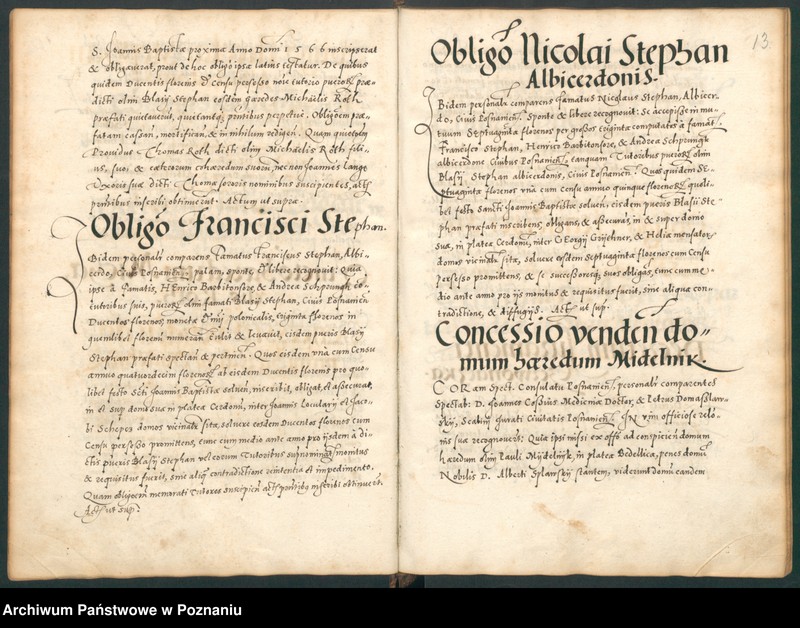 S. Joannis Baptistæ proximæ Anno Domi 1566 inscripserat
& obligaverat, prout de hoc obligo ipsæ latius testatur. De quibus
quidem Ducentis florenis & censu persesso noie tutorio puerorū præ-
dicti olim Blasij Stephan eosdem hæredes Michaelis Roth
præfati quietaverūt, quietantq; primibus perpetue. Obligoem præ-
fatam cassan, mortifican, & in nihilum redigen. Quam quietoem
Providus Thomas Roth dicti olim Michaelis Roth fili-
us, suo & cæterorum cohæredum suorū, nec non Joannis Lange
Uxoris suæ dicti Thomæ sororis nominibus suscipientes, actis
pntibus inscribi obtinuerūt. Actum ut supra.
Obligo Francisci Stephan.
Ibidem personalr comparens Famatus Franciscus Stephan, Albi-
cerdo, Civis Posnanien, palam, sponte, & libere recognovit: Quia
ipse à Famatis, Henrico Barbitonsore, & Andrea Schprungk co-
tutoribus suis, puerorū olim famati Blasij Stephan, Civis Posnanien
Ducentos florenos, monetæ & nūi polonicalis, triginta florenos in
quemlibet florenū numeran levavit, eisdem pueris Blasij
Stephan præfati spectan & pertinen. Quos eisdem unà cum Censu
annuo quatuordecim florenorū ab eisdem Ducentis florenis pro quo-
libet festo Scti Joannis Baptistæ solven, inscribit, obligat, et assecurat,
in et sup domo sua in platea Cerdonū, inter Joannis Locularij et Jaco-
bi Scheper domos vicinales sita, solvere eosdem Ducentos florenos cum
Censu persesso promittens, eunc cum medio ante anno pro ijsdem à di-
ctis pueris Blasij Stephan vel eorum Tutoribus supnominatis monitus
& requisitus fuerit, sine aliq contradictione renitentia et impedimento.
Quam obligoem memorati Tutores suscipien actis pntibus inscribi obtinuerūt.
Act ut sup.
13
Obligo Nicolai Stephan
Albicerdonis.
Ibidem personalr comparens famatus Nicolaus Stephan, Albicer-
do, Civis Posnanien, Sponte & libere recognovit: Se accepisse in mu-
tuum Septuaginta florenos per grossos triginta computatos à famat.
Francisco Stephan, Henrico Barbitonsore, & Andrea Schprungk
albicerdone Civibus Posnanien, tanquam Tutoribus puerorū olim
Blasij Stephan albicerdonis, Civis Posnanien. Quos quidem Se-
ptuaginta florenos unà cum censu annuo quinque florenorū quoli-
bet festo Sancti Joannis Baptistæ solven, eisdem pueris Blasij Ste-
phan præfati inscribens, obligans, & assecurans, in & super domo
sua, in platea Cerdonū, inter Georgij Grijehner, & Heliæ mensator.
domos vicinales sita, solvere eosdem Septuaginta florenos cum Censu
persesso promittens, & se successoresq; suos obligans, cunc cum me-
dio ante anno pro ijs monitus & requisitus fuerit, sine aliqua con-
tradictione, & diffugijs. Act ut sup.
Concessio venden do-
mum hæredum Midelnik.
CORam Spect. Consulatu Posnanien, personalr comparentes
Spectab: D. Joannes Coßzius Medicinæ Doctor, & Petrus Domaßlaw-
skij, Scabini Jurati Civitatis Posnanien. IN vim officiosæ relo-
nis suæ recognoverūt: Quia ipsi missi ex offo ad conspicien domum
hæredum olim Pauli Mijdelnijk, in platea Bedellica, penes domū
Nobilis D. Alberti Splawskij stantem, viderunt domū eandem
Archiwum Państwowe w Poznaniu